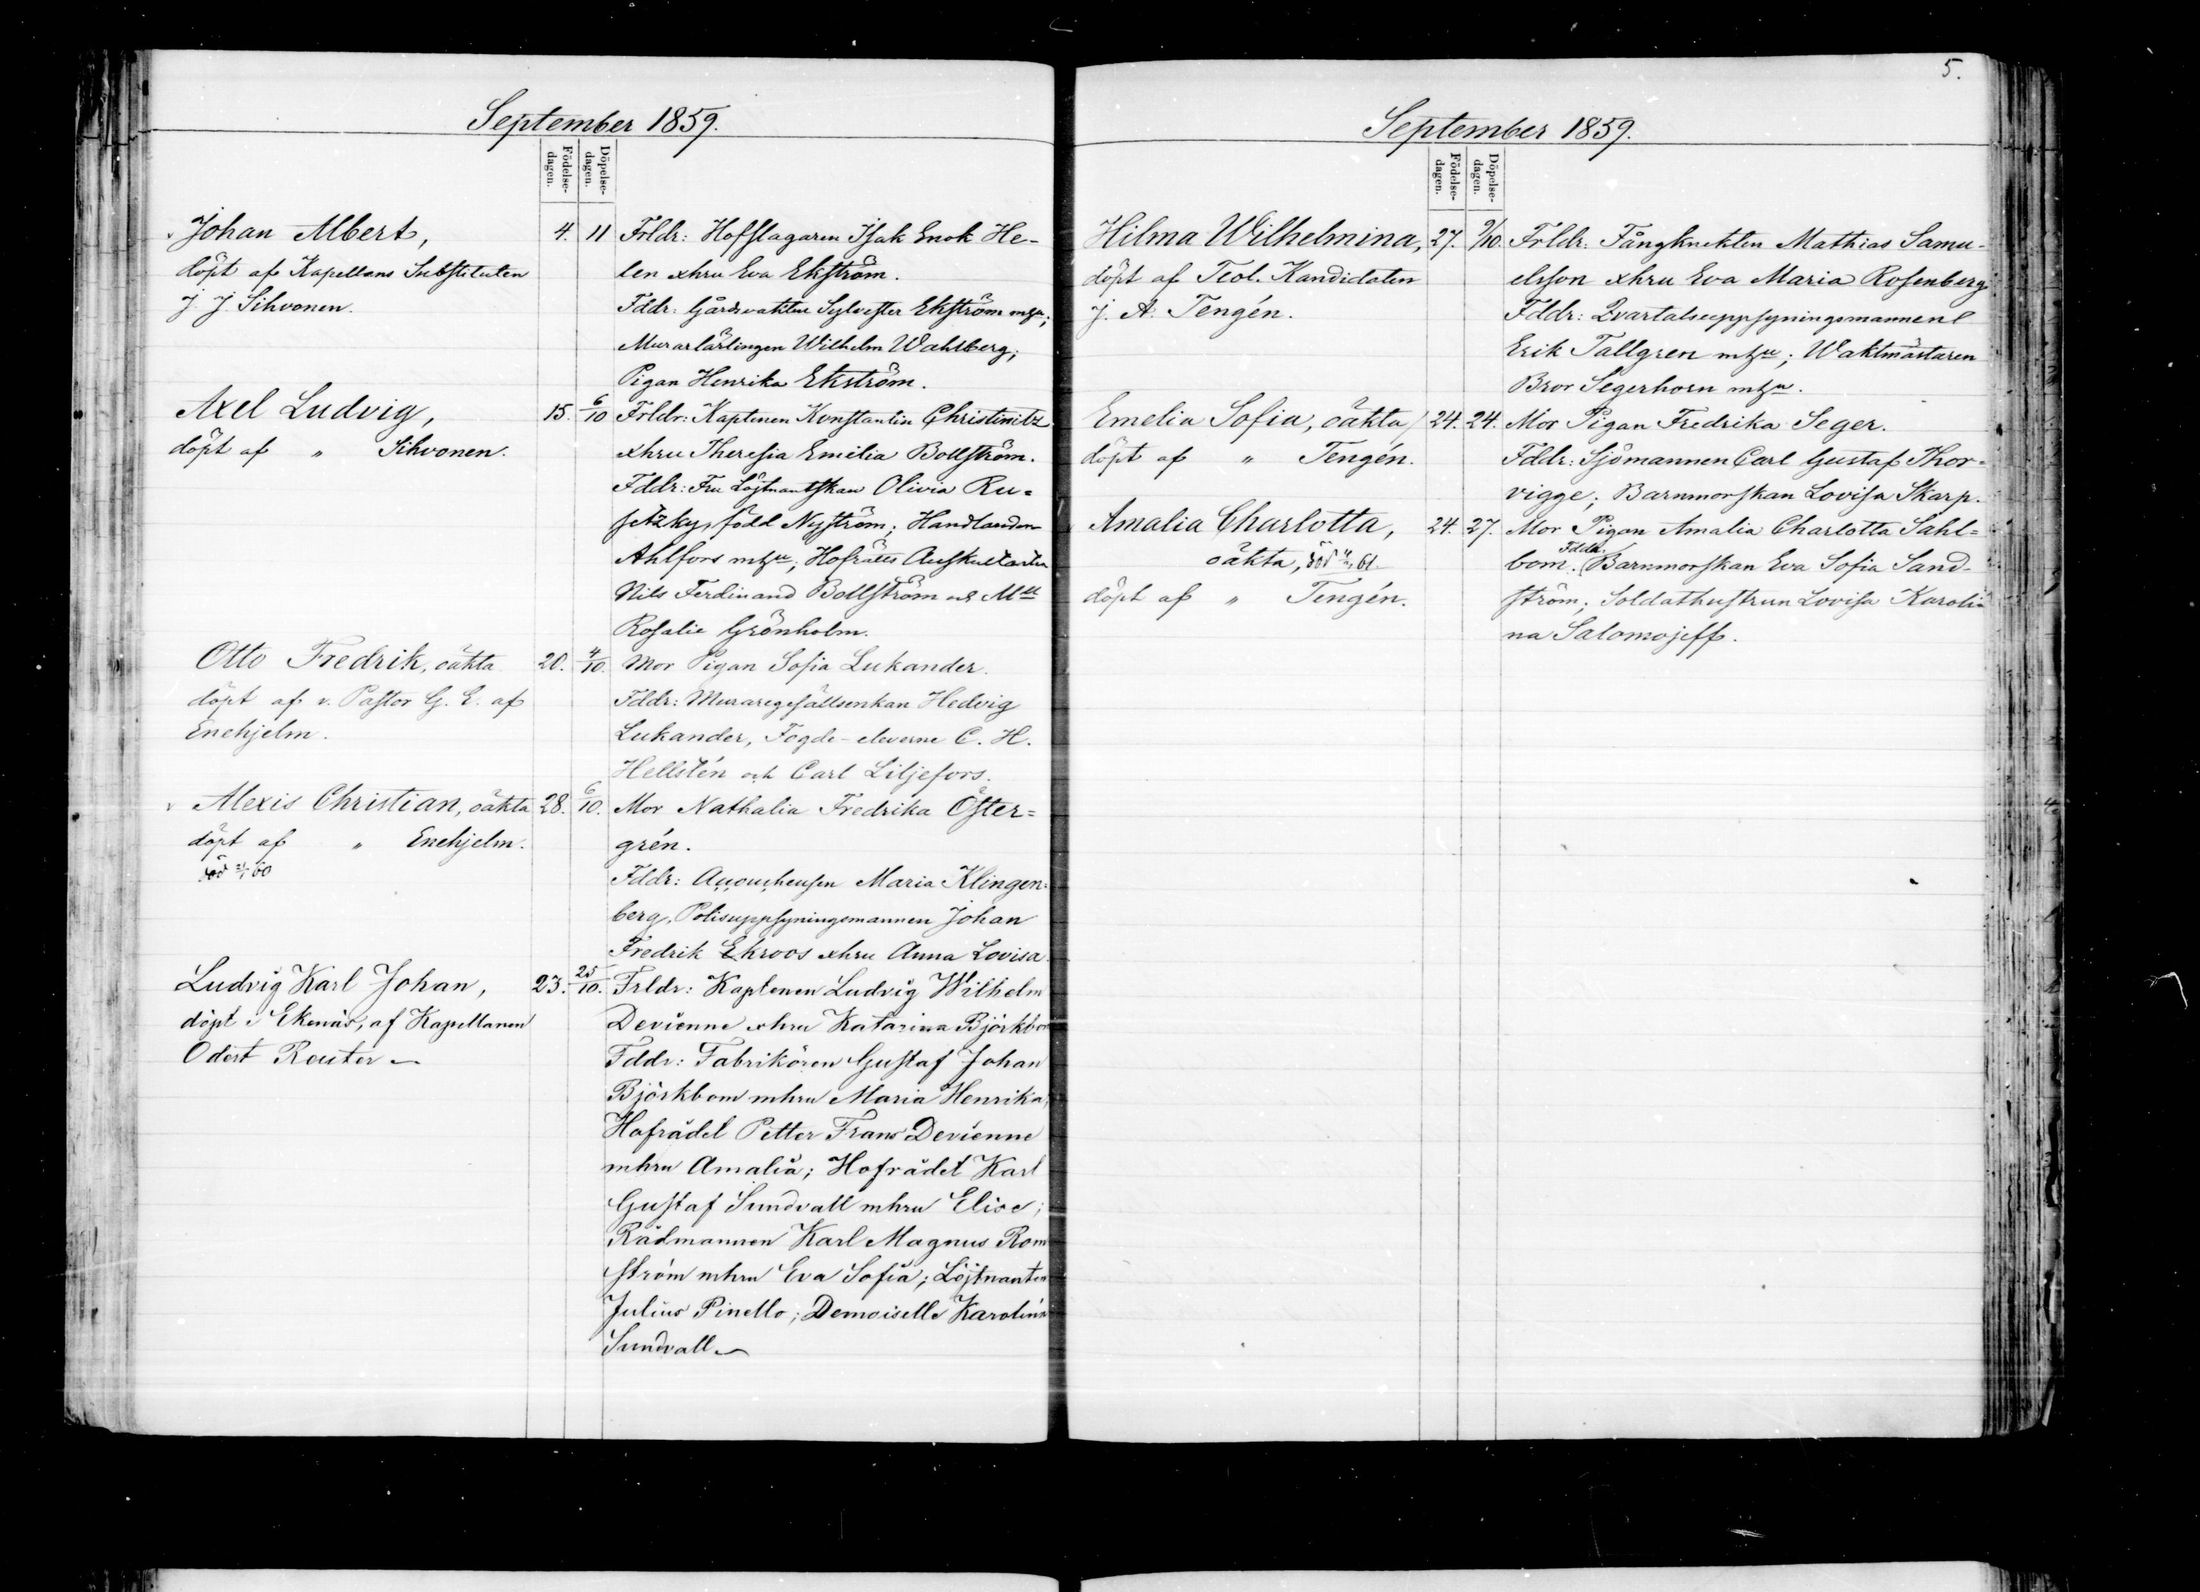 September 1859.
Födelse-
dagen.
Döpelse-
dagen.
Johan Albert, 4. 11 Frldr: Hofslagaren Isak Enok He-
döpt af Kapellans Substituten len xhru Eva Ekström.
J. J. Sihvonen. Fddr: Gårdsvakten Sylvester Ekström mhu;
Murarlärlingen Wilhelm Wahlberg;
Pigan Henrika Ekström.
Axel Ludvig, 15. 6/10 Frldr: Kaptenen Konstantin Christinitz
döpt af " Sihvonen. xhru Theresia Emilia Bollström.
Fddr: Fru Löjtnantskan Olivia Ru-
setzky, född Nyström; Handlanden
Ahlfors mhu; Hofrätts Auskultanten
Nils Ferdinand Bollström och Mll
Rosalie Grönholm.
Otto Fredrik, oäkta 20. 4/10. Mor Pigan Sofia Lukander.
döpt af v. Pastor G. E. af Fddr: Muraregesällsenkan Hedvig
Enehjelm. Lukander, Fogde-eleverne C. H.
Hellstén och Carl Liljefors.
Alexis Christian, oäkta 28. 6/10. Mor Nathalia Fredrika Öster=
döpt af " Enehjelm. grén.
död 60 Fddr: Accoucheusen Maria Klingen=
berg, Polisuppsyningsmannen Johan
Fredrik Ekroos xhru Anna Lovisa
Ludvig Karl Johan, 23. 25/10. Frldr: Kaptenen Ludvig Wilhelm
döpt i Ekenäs, af Kapellanen Devienne xhru Katarina Björkbom
Odert Reuter Fddr: Fabrikören Gustaf Johan
Björkbom mhru Maria Henrika,
Hofrådet Petter Frans Devienne
mhru Amalia; Hofrådet Karl
Gustaf Sundvall mhru Elise;
Rådmannen Karl Magnus Rom
ström mhru Eva Sofia; Löjtnanten
Julius Pinello; Demoiselle Karolina
Sundvall
5.
September 1859.
Födelse-
dagen.
Döpelse-
dagen.
Hilma Wilhelmina, 27. 9/10. Frldr: Fångknekten Mathias Samu-
döpt af Teol. Kandidaten elsson xhru Eva Maria Rosenberg
J. A. Tengén. Fddr: Qvartalsuppsyningsmannen
Erik Tallgren mhu; Waktmästaren
Bror Segerhorn mhu.
Emelia Sofia, oäkta 24. 24. Mor Pigan Fredrika Seger.
döpt af " Tengén. Fddr: Sjömannen Carl Gustaf Thor-
vigge; Barnmorskan Lovisa Skarp.
Amalia Charlotta, 24. 27. Mor Pigan Amalia Charlotta Sahl=
oäkta, död 61 bom. Fddr: Barnmorskan Eva Sofia Sand-
döpt af " Tengén. ström; Soldathustrun Lovisa Karoli
na Salomojeff.